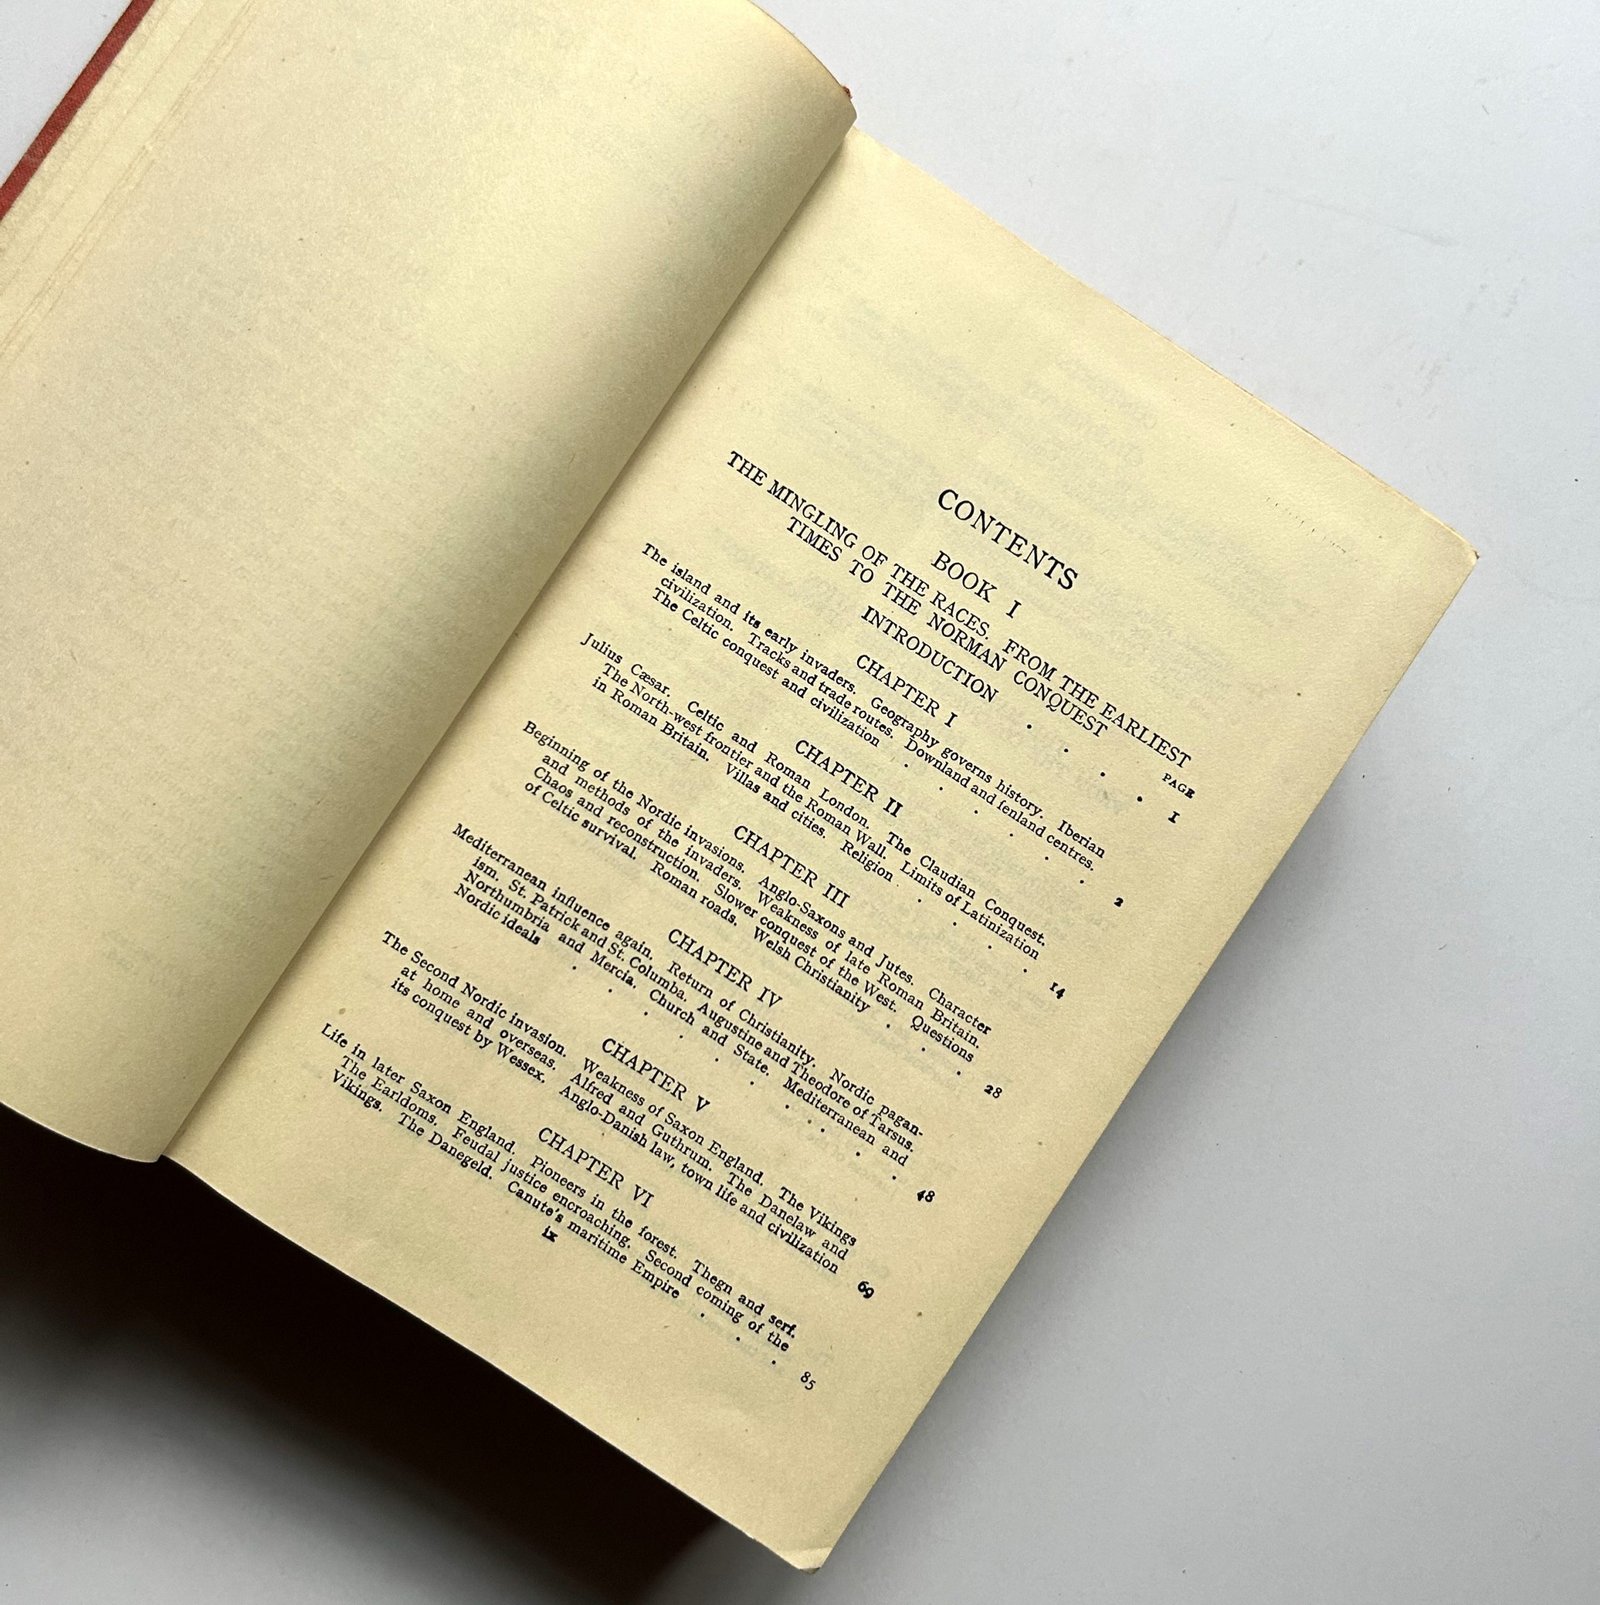 CONTENTS
BOOK I
THE MINGLING OF THE RACES. FROM THE EARLIEST
TIMES TO THE NORMAN CONQUEST
PAGE
INTRODUCTION . . . . 1
CHAPTER I
The island and its early invaders. Geography governs history. Iberian
civilization. Tracks and trade routes. Downland and fenland centres.
The Celtic conquest and civilization . . . . . . 2
CHAPTER II
Julius Cæsar. Celtic and Roman London. The Claudian Conquest.
The North-west frontier and the Roman Wall. Limits of Latinization
in Roman Britain. Villas and cities. Religion . . . . . 14
CHAPTER III
Beginning of the Nordic invasions. Anglo-Saxons and Jutes. Character
and methods of the invaders. Weakness of late Roman Britain.
Chaos and reconstruction. Slower conquest of the West. Questions
of Celtic survival. Roman roads. Welsh Christianity . . . 28
CHAPTER IV
Mediterranean influence again. Return of Christianity. Nordic pagan-
ism. St. Patrick and St. Columba. Augustine and Theodore of Tarsus.
Northumbria and Mercia. Church and State. Mediterranean and
Nordic ideals . . . . . . . . . . 48
CHAPTER V
The Second Nordic invasion. Weakness of Saxon England. The Vikings
at home and overseas. Alfred and Guthrum. The Danelaw and
its conquest by Wessex. Anglo-Danish law, town life and civilization 69
CHAPTER VI
Life in later Saxon England. Pioneers in the forest. Thegn and serf.
The Earldoms. Feudal justice encroaching. Second coming of the
Vikings. The Danegeld. Canute's maritime Empire . . . 85
ix